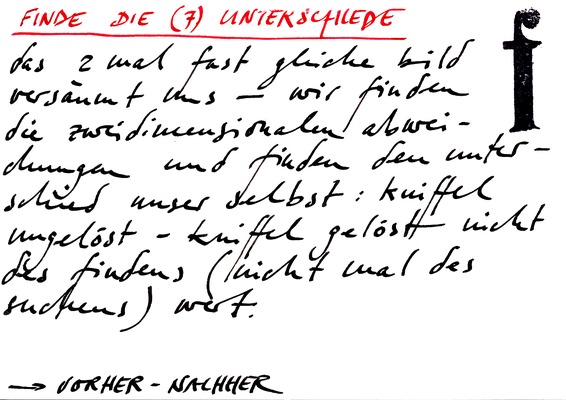 FINDE DIE (7) UNTERSCHIEDE
f
das 2 mal fast gleiche bild
versäumt uns – wir finden
die zweidimensionalen abwei-
chungen und finden den unter-
schied unser selbst : kniffel
ungelöst – kniffel gelöst nicht
des findens (nicht mal des
suchens) wert.
→ VORHER - NACHHER